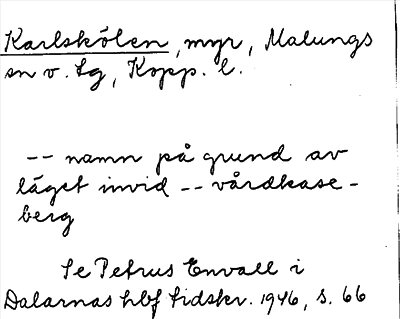 Karlskölen, myr, Malungs
sn v. lg, Kopp. l.
-- namn på grund av
läget invid -- vårdkase-
berg
Se Petrus Envall i
Dalarnas hbf tidskr. 1946, s. 66